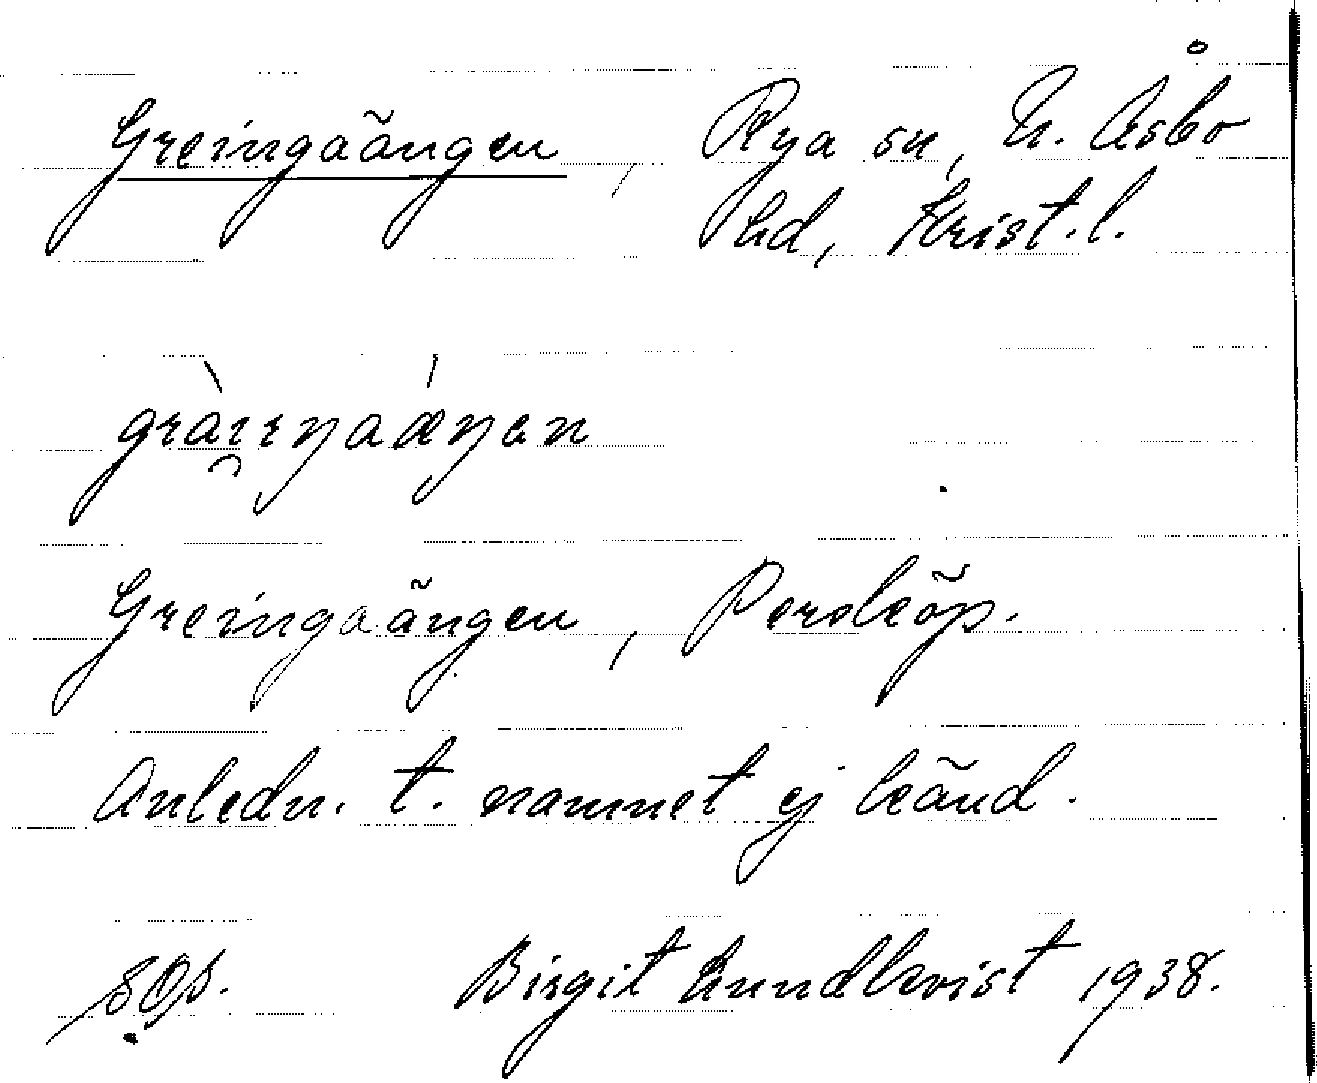 Greingaängen, Rya sn, N. Åsbo
hd, Krist. l.
gràɪ̯ɪŋaǽŋan
Greingaängen, Perslköp.
Anledn. t. namnet ej känd.
Birgit Lundkvist 1938.